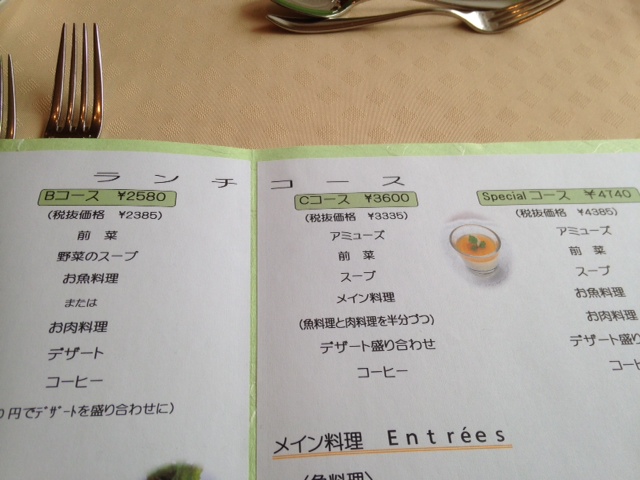 ランチコース
Bコース ¥2580
(税抜価格 ¥2385)
前 菜
野菜のスープ
お魚料理
または
お肉料理
デザート
コーヒー
円でﾃﾞｻﾞｰﾄを盛り合わせに)
Cコース ¥3600
(税抜価格 ¥3335)
アミューズ
前 菜
スープ
メイン料理
(魚料理と肉料理を半分づつ)
デザート盛り合わせ
コーヒー
Special コース ¥4740
(税抜価格 ¥4385)
アミューズ
前 菜
スープ
お魚料理
お肉料理
デザート盛り
コー
メイン料理 Entrées
(魚料理)